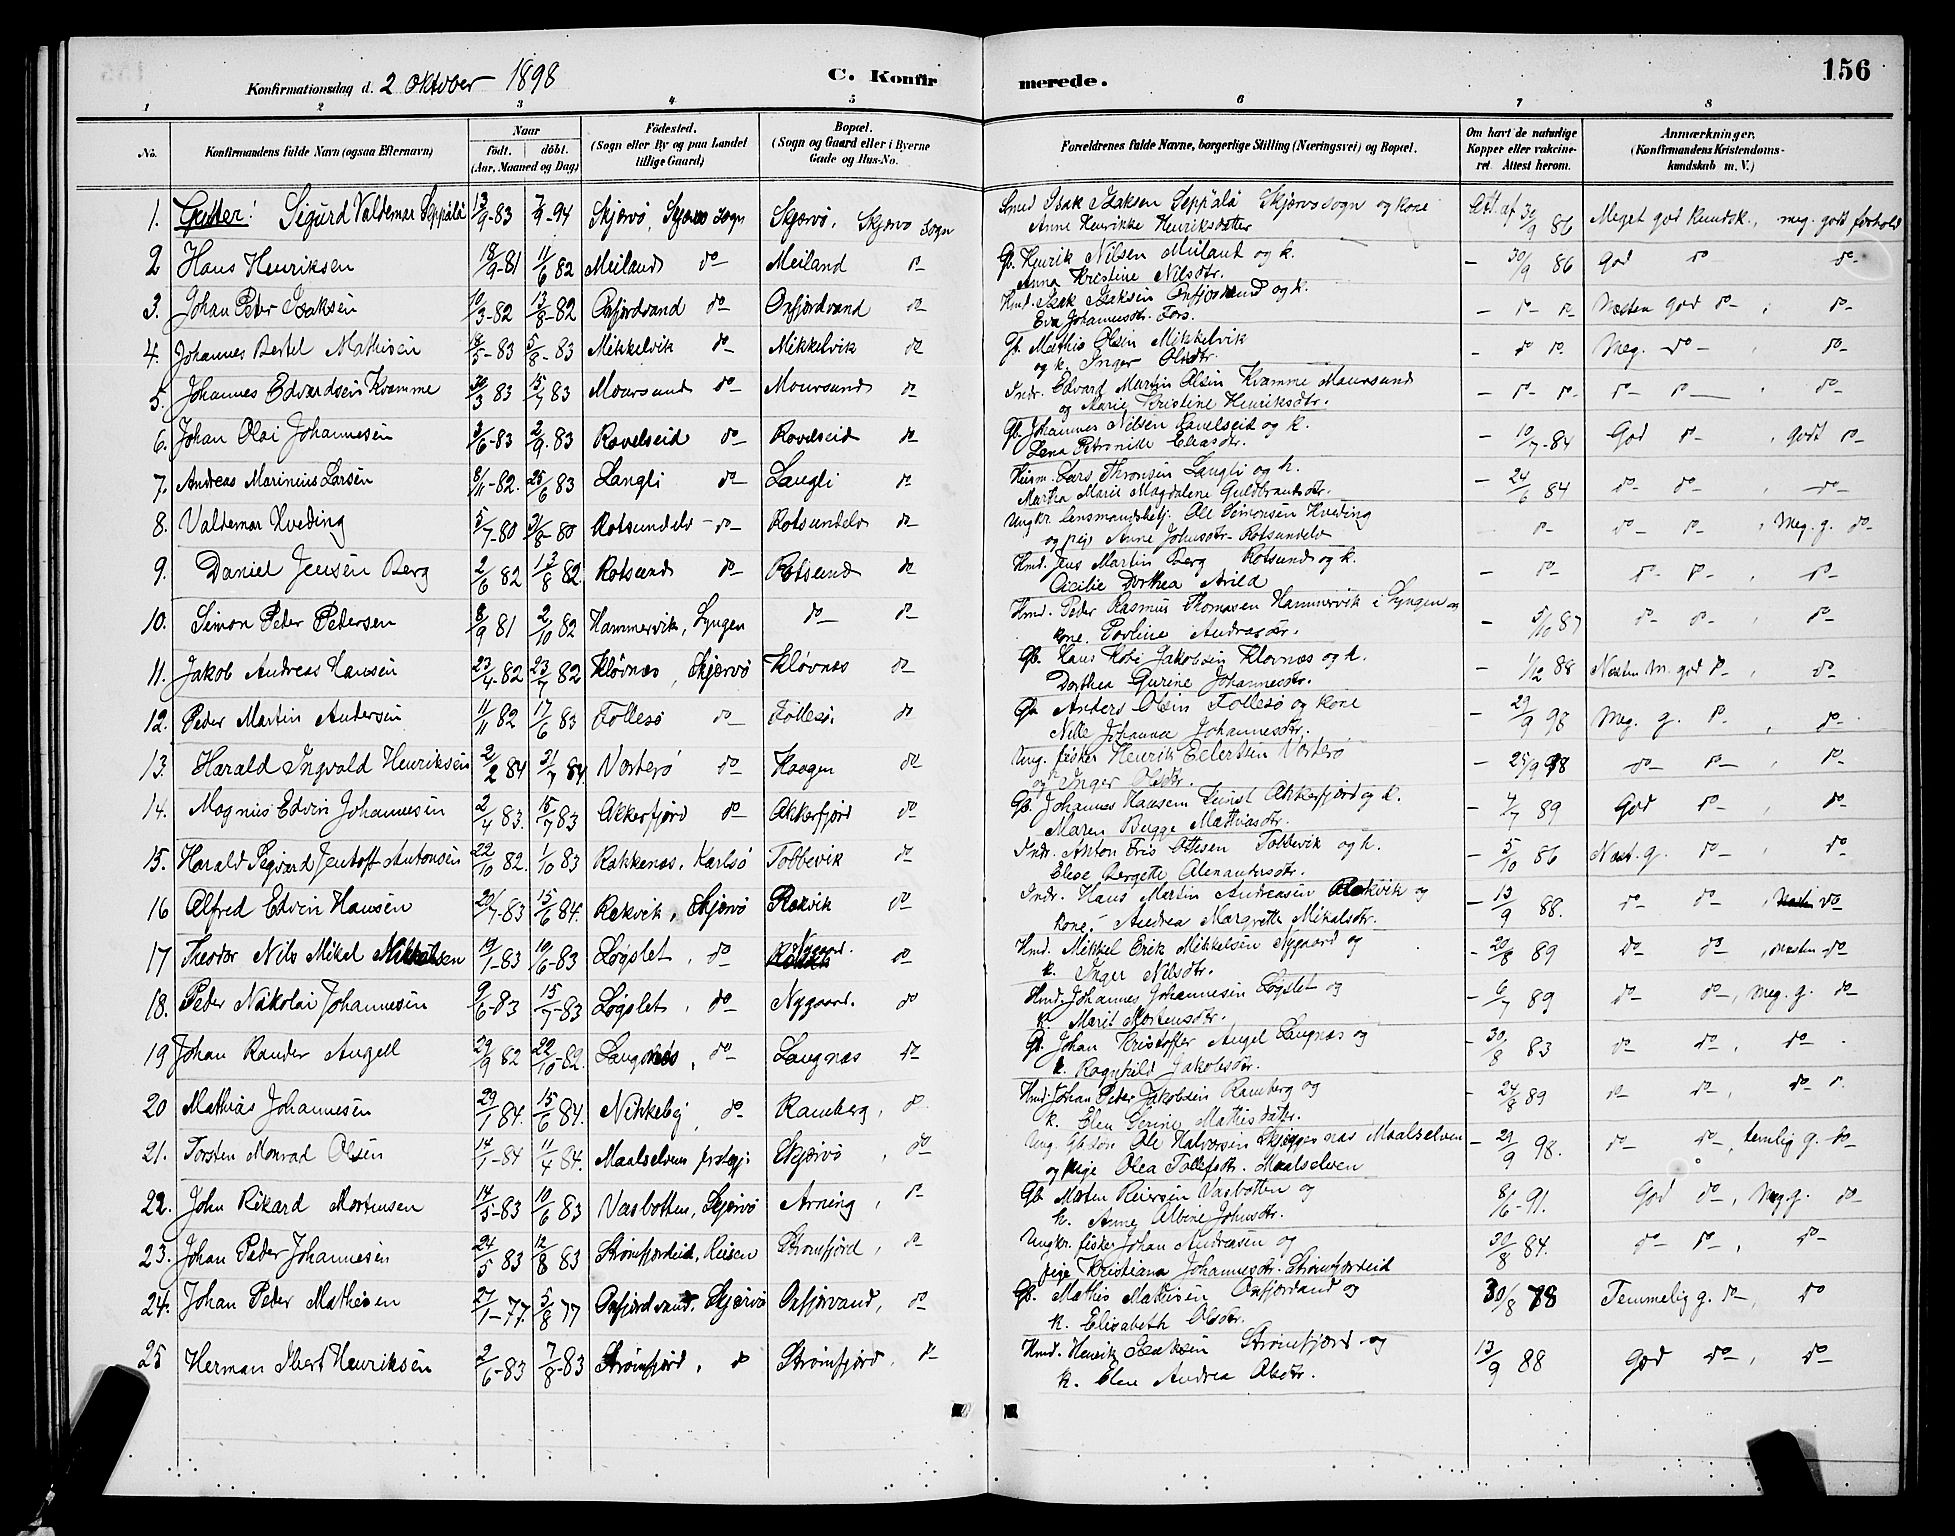 Konfirmationsdag d. 2 Oktober 1898
C. Konfirmerede.
156
1 2 3 4 5 6 7 8
No.
Konfirmandens fulde Navn (ogsaa Efternavn)
Naar
født. døbt.
(Aar, Maaned og Dag)
Fødested.
(Sogn eller By og paa Landet
tillige Gaard)
Bopæl.
(Sogn og Gaard eller i Byerne
Gade og Hus-No.
Forældrenes fulde Navne, borgerlige Stilling (Næringsvei) og Bopæl.
Om havt de naturlige
Kopper eller vakcine-
ret. Attest herom.
Anmærkninger.
(Konfirmandens Kristendoms-
kundskab m. V.)
1. Gutter: Sigurd Valdemar Seppälä 13/9-83 -94 Skjervö, Skjervö Sogn Skjervö, Skjervö Sogn Smed Isak Isaksen Seppälä Skjervö sogn og kone Att. af 30/9 86 Meget god Kundsk., meg. godt forhold
Anne Henrikke Henriksdatter
2 Hans Henriksen 18/9-81 11/6 82 Meiland do Meiland do Gb. Henrik Nilsen Meiland og k. - 30/9 86 God do do
Anna Kristine Nilsdtr.
3. Johan Peter Isaksen 10/3-82 13/8-82 Oxfjordvand do Oxfjordvand do Hmd. Isak Isaksen Oxfjordvand og k. - do do Næsten God do, do
Eva Johannesdtr. Fors.
4. Johannes Bertel Mathisen /5-83 5/8-83 Mikkelvik do Mikkelvik do Gb. Mathis Olsen Mikkelvik - do do Meg. do, do
og k. Inger Olsdtr.
5. Johannes Edvardsen Kvamme 30/3 83 15/7 83 Maursund do Maursund do Indr. Edvard Martin Olsen Kvamme Maursund - do do do do do
og Marie Kristine Henriksdtr.
6. Johan Olai Johannesen 3/6-83 2/9-83 Ravelseid do Ravelseid do Gb. Johannes Nilsen Ravelseid og k. - 10/7-84 God do, Godt do
Lena Petronille Eliasdtr.
7. Andreas Marinius Larsen 8/11-82. 25/6 83 Langli do Langli do Husm. Lars Thronsen Langli og k. - 24/6 84 do do, do
Martha Marie Magdalene Guldbrantsdtr.
8. Valdemar Hveding 5/7-80 31/8-80 Rotsundelv do Rotsundelv do Ungkr. lensmandsbetj. Ole Simonsen Hveding do do do, Meg. g. do
og pige Anne Johnsdtr. Rotsundelv
9. Daniel Jensen Berg 2/6 82 13/8 82 Rotsund do Rotsund do Hmd. Jens Martin Berg Rotsund og k. - do do do, do
Cecilie Dorthea Arild
10. Simon Peter Petersen 8/9 81 2/10 82 Hammervik, Lyngen do do Hmd. Peder Rasmus Thomasen Hammervik i Lyngen og - 5/10 87 do do, do
kone Povline Andreasdtr.
11. Jakob Andreas Hansen 23/4-82 23/7 82 Kløvnes, Skjervö Kløvnes do Gb. Hans Kobi Jakobsen Klovnæs og k. - 1/12 88 Næsten m. god do, do
Dorthea Gurine Johannesdtr.
12. Peder Martin Andersen 11/11 82 17/6 83 Follesö do Follesö. do Gb. Anders Olsen Follesö og kone - 29/9 98 Meg. g. do, do
Nille Johanna Johannesdtr.
13. Harald Ingvald Henriksen 2/2 84 31/7 84 Vorterö do Kaagen do Ung. fisker Henrik Eilertsen Vorterö - 25/9 98 do do, do
og Inger Olsdtr.
14. Magnus Edvin Johannesen 2/4 83. 15/7 83 Akkerfjord do Akkerfjord do Gb. Johannes Hansen Akkerfjord og k. - 4/7 89 God do, do
Maren Bugge Mathiasdtr.
15. Harald Segvard Jentoft Antonsen 22/10 82. 1/10 83 Rakkenæs, Karlsö Tobbevik do Indr. Anton Eris Ottesen Tobbevik og k. - 5/10 86 Næst. g. do, do
Elese Bergette Alexandersdtr.
16 Alfred Edvin Hansen 20/7-83 15/6 84. Rekvik, Skjervö Rekvik do Indr. Hans Martin Andreasen Rekvik og - 13/9 88. do do, do
kone Andrea Margrethe Mikalsdtr.
17 Theodor Nils Mikel Mikkelsen 19/1-83 10/6-83 Løgslet, do Nygaard. do Hmd. Mikkel Erik Mikkelsen Nygaard og - 20/8 89 do do, næsten do
k. Inger Nilsdtr.
18. Peder Nikolai Johannesen 9/6-83 15/7-83 Løgslet, do Nygaard. do Hmd. Johannes Johannesen Løgslet og - 6/7 89 do do, meg. g. do
k. Marit Mortensdtr.
19 Johan Rander Angell 29/9 82 22/10-82. Langnæs, do Langnæs do Gb. Johan Kristoffer Angel Langnæs og - 30/8 83 do do, do
k. Ragnhild Jakobsdtr.
20 Mathias Johannesen 29/1 84. 15/6 84. Nikkeby, do Ramberg, do Hmd. Johan Peder Jakobsen Ramberg og - 24/8 89 do do, do do
k. Elen Serine Mathisdatter.
21. Torsten Monrad Olsen 14/1-84 11/4 84. Maalselven prstegj. Skjervö, do Ung. Gbsøn Ole Halvorsen Skjæggesnæs Maalselven - 29/9 98. do do, temlig g. do
og pige Olea Tollefsdtr. Maalselven
22. John Rikard Mortensen 14/5-83 10/6 83 Vasbotten, Skjervö Arning, do Gb. Morten Reiersen Vasbotten og 8/6-91. God do, Meg. g. do
k. Anne Albine Johnsdtr.
23. Johan Peder Johannesen 24/5 83 12/8 83 Strømfjordeid, Reisen Stromfjord, do Ungkr. fisker Johan Andreasen og 30/8 84. do do, do
pige Kristiana Johannesdtr. Strömfjordeid
24. Johan Peter Mathisen 27/1-77. 5/8 77 Oxfjordvand, Skjervö Oxfjorvand, do Gb. Mathis Mathisen Oxfjordvand og 30/8 78 Temmelig g. do, do
k. Elisabeth Olsdtr.
25 Herman Ibert Henriksen 2/6-83 7/8-83 Strömfjord, do Strömfjord, do Hmd. Henrik Isaksen Strömfjord og 13/9 88 God do, do
k. Elen Andrea Olsdtr.